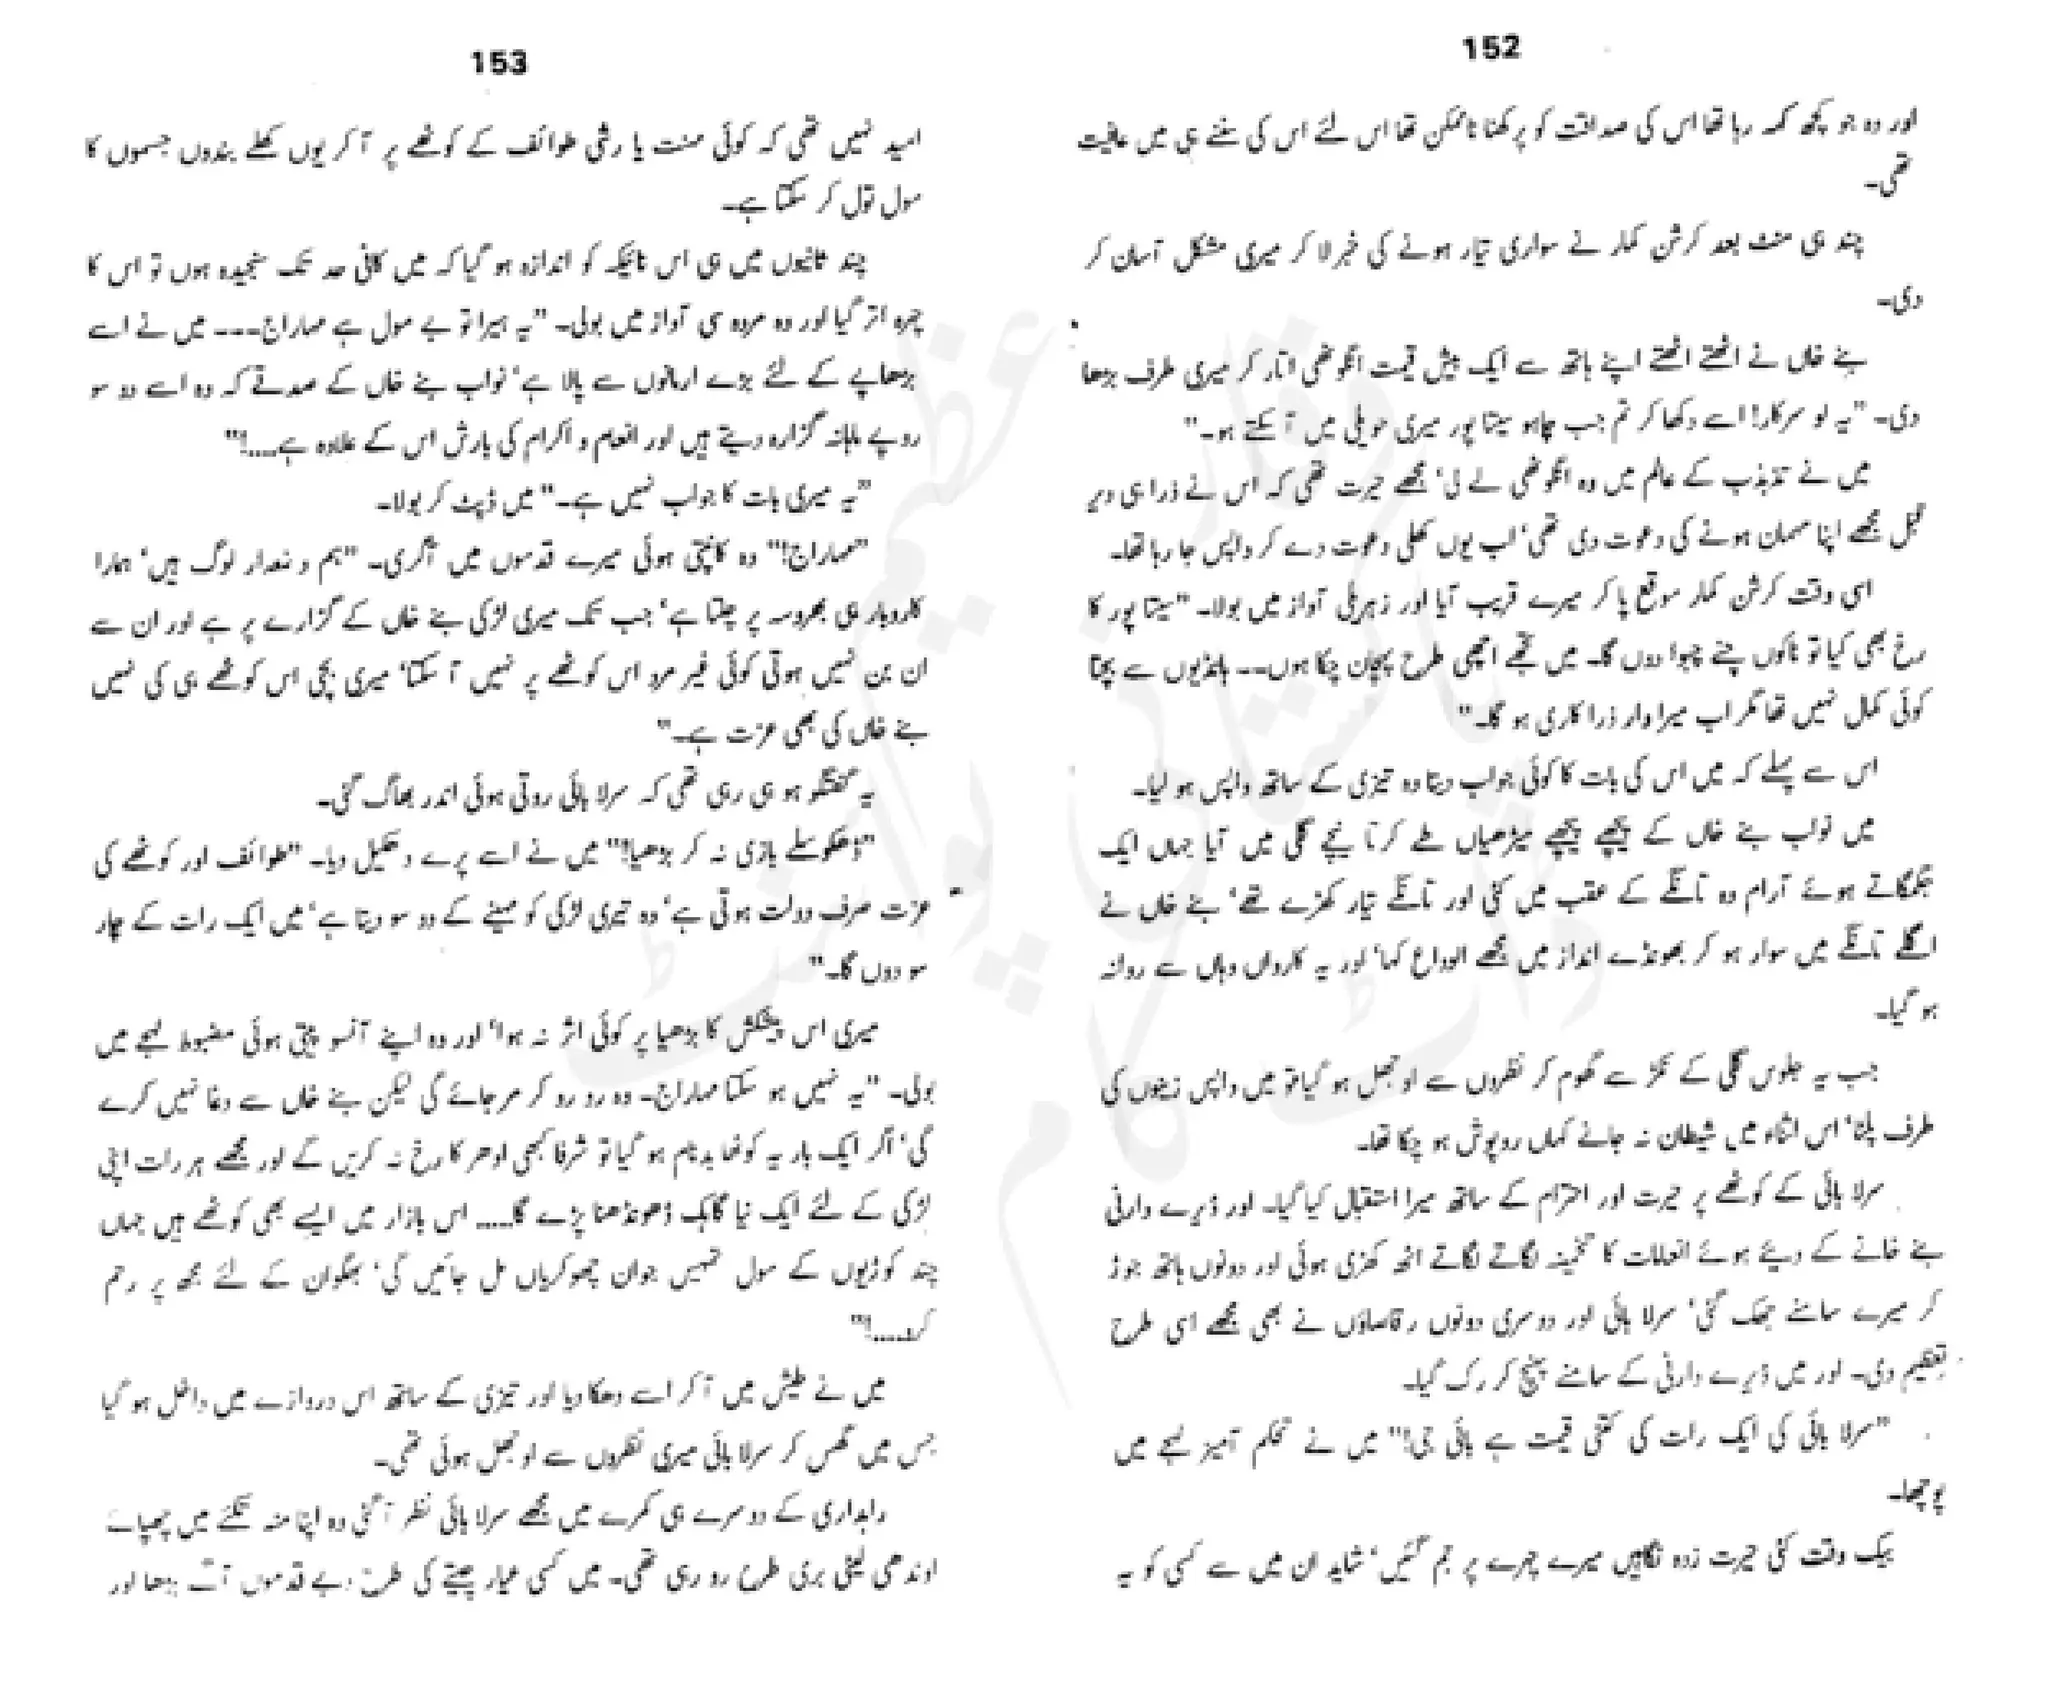 152
اور وہ جو کچھ کہہ رہا تھا اس کی صداقت کو پرکھنا ناممکن تھا اس لئے اس کی سننے ہی میں عافیت
تھی۔
چند ہی منٹ بعد کرشن کمار نے سواری تیار ہونے کی خبر لا کر میری مشکل آسان کر
دی۔
بنے خاں نے اٹھتے اٹھتے اپنے ہاتھ سے ایک بیش قیمت انگوٹھی اتار کر میری طرف بڑھا
دی۔ "یہ لو سرکار! اسے دکھا کر تم جب چاہو سیتا پور میری حویلی میں آ سکتے ہو۔"
میں نے تذبذب کے عالم میں وہ انگوٹھی لے لی‘ مجھے حیرت تھی کہ اس نے ذرا ہی دیر
قبل مجھے اپنا مہمان ہونے کی دعوت دی تھی‘ اب یوں کھلی دعوت دے کر واپس جا رہا تھا۔
اسی وقت کرشن کمار موقع پا کر میرے قریب آیا اور زہریلی آواز میں بولا۔ "سیتا پور کا
رخ بھی کیا تو ناکوں چنے چبوا دوں گا۔ میں تجھے اچھی طرح پہچان چکا ہوں۔۔ ہانڈیوں سے بچنا
کوئی کمال نہیں تھا مگر اب میرا وار ذرا کاری ہو گا۔"
اس سے پہلے کہ میں اس کی بات کا کوئی جواب دیتا وہ تیزی کے ساتھ واپس ہو لیا۔
میں نواب بنے خاں کے پیچھے پیچھے سیڑھیاں طے کرتا نیچے گلی میں آیا جہاں ایک
جگمگاتے ہوئے آرام دہ تانگے کے عقب میں کئی اور تانگے تیار کھڑے تھے‘ بنے خاں نے
اگلے تانگے میں سوار ہو کر بھونڈے انداز میں مجھے الوداع کہا‘ اور یہ کارواں وہاں سے روانہ
ہو گیا۔
جب یہ جلوس گلی کے نکڑ سے گھوم کر نظروں سے اوجھل ہو گیا تو میں واپس زینوں کی
طرف پلٹا‘ اس اثناء میں شیطان نہ جانے کہاں روپوش ہو چکا تھا۔
سرلا بائی کے کوٹھے پر حیرت اور احترام کے ساتھ میرا استقبال کیا گیا۔ اور ڈیرے دارنی
بنے خانے کے دیئے ہوئے انعامات کا تخمینہ لگاتے لگاتے اٹھ کھڑی ہوئی اور دونوں ہاتھ جوڑ
کر میرے سامنے جھک گئی‘ سرلا بائی اور دوسری دونوں رقاصاؤں نے بھی مجھے اسی طرح
تعظیم دی۔ اور میں ڈیرے دارنی کے سامنے پہنچ کر رک گیا۔
"سرلا بائی کی ایک رات کی کتنی قیمت ہے بائی جی!" میں نے تحکم آمیز لہجے میں
پوچھا۔
بیک وقت کئی حیرت زدہ نگاہیں میرے چہرے پر جم گئیں‘ شاید ان میں سے کسی کو یہ
153
امید نہیں تھی کہ کوئی منت یا رشی طوائف کے کوٹھے پر آ کر یوں کھلے بندوں جسموں کا
مول تول کر سکتا ہے۔
چند ثانیوں میں ہی اس نائیکہ کو اندازہ ہو گیا کہ میں کافی حد تک سنجیدہ ہوں تو اس کا
چہرہ اتر گیا اور وہ مردہ سی آواز میں بولی۔ "یہ ہیرا تو بے مول ہے مہاراج۔۔۔ میں نے اسے
بڑھاپے کے لئے بڑے ارمانوں سے پالا ہے‘ نواب بنے خاں کے صدقے کہ وہ اسے دو سو
روپے ماہانہ گزارہ دیتے ہیں اور انعام و اکرام کی بارش اس کے علاوہ ہے....!"
"یہ میری بات کا جواب نہیں ہے۔" میں ڈپٹ کر بولا۔
"مہاراج!" وہ کانپتی ہوئی میرے قدموں میں آگری۔ "ہم وضعدار لوگ ہیں‘ ہمارا
کاروبار ہی بھروسہ پر چلتا ہے‘ جب تک میری لڑکی بنے خاں کے گزارے پر ہے اور ان سے
ان بن نہیں ہوتی کوئی غیر مرد اس کوٹھے پر نہیں آ سکتا‘ میری بچی اس کوٹھے ہی کی نہیں
بنے خاں کی بھی عزت ہے۔"
یہ گفتگو ہو ہی رہی تھی کہ سرلا بائی روتی ہوئی اندر بھاگ گئی۔
"ڈھکوسلے بازی نہ کر بڑھیا!" میں نے اسے پرے دھکیل دیا۔ "طوائف اور کوٹھے کی
عزت صرف دولت ہوتی ہے‘ وہ تیری لڑکی کو مہینے کے دو سو دیتا ہے‘ میں ایک رات کے چار
سو دوں گا۔"
میری اس پیشکش کا بڑھیا پر کوئی اثر نہ ہوا‘ اور وہ اپنے آنسو پیتی ہوئی مضبوط لہجے میں
بولی۔ "یہ نہیں ہو سکتا مہاراج۔ وہ رو رو کر مر جائے گی لیکن بنے خاں سے دغا نہیں کرے
گی‘ اگر ایک بار یہ کوٹھا بدنام ہو گیا تو شرفا کبھی ادھر کا رخ نہ کریں گے اور مجھے ہر رات اپنی
لڑکی کے لئے ایک نیا گاہک ڈھونڈھنا پڑے گا..... اس بازار میں ایسے بھی کوٹھے ہیں جہاں
چند کوڑیوں کے مول تمہیں جوان چھوکریاں مل جائیں گی‘ بھگوان کے لئے مجھ پر رحم
کرو.....!"
میں نے طیش میں آ کر اسے دھکا دیا اور تیزی کے ساتھ اس دروازے میں داخل ہو گیا
جس میں گھس کر سرلا بائی میری نظروں سے اوجھل ہوئی تھی۔
راہداری کے دوسرے ہی کمرے میں مجھے سرلا بائی نظر آ گئی وہ اپنا منہ تکئے میں چھپائے
اوندھی لیٹی بری طرح رو رہی تھی۔ میں کسی عیار چیتے کی طرح دبے قدموں آگے بڑھا اور
وقار عظیم
پاکستانی پوائنٹ
ڈاٹ کام